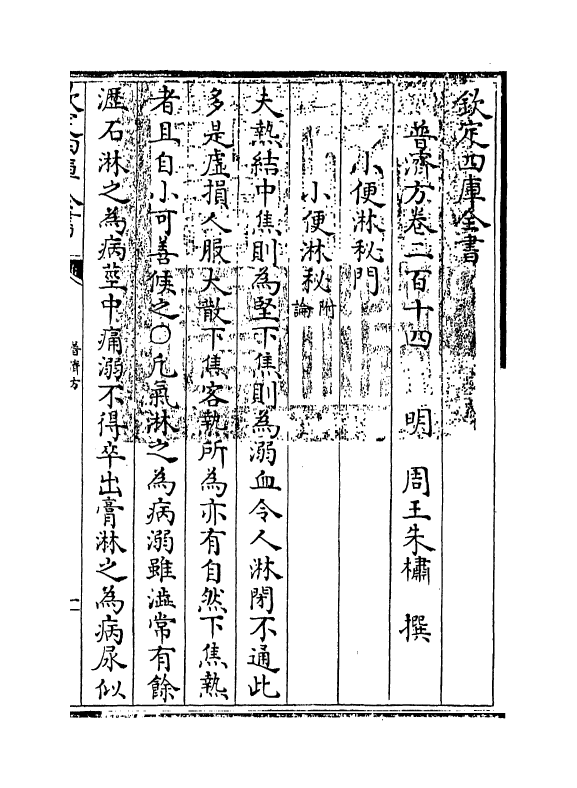 欽定四庫全書
普濟方卷二百十四　明　周王朱橚　撰
小便淋秘門
小便淋秘附論
夫熱結中焦則為堅下焦則為溺血令人淋閉不通此
多是虛損人服大散下焦客熱所為亦有自然下焦熱
者且自小可善候之○凡氣淋之為病溺雖澁常有餘
瀝石淋之為病莖中痛溺不得卒出膏淋之為病尿似
欽定四庫全書
普濟方
一